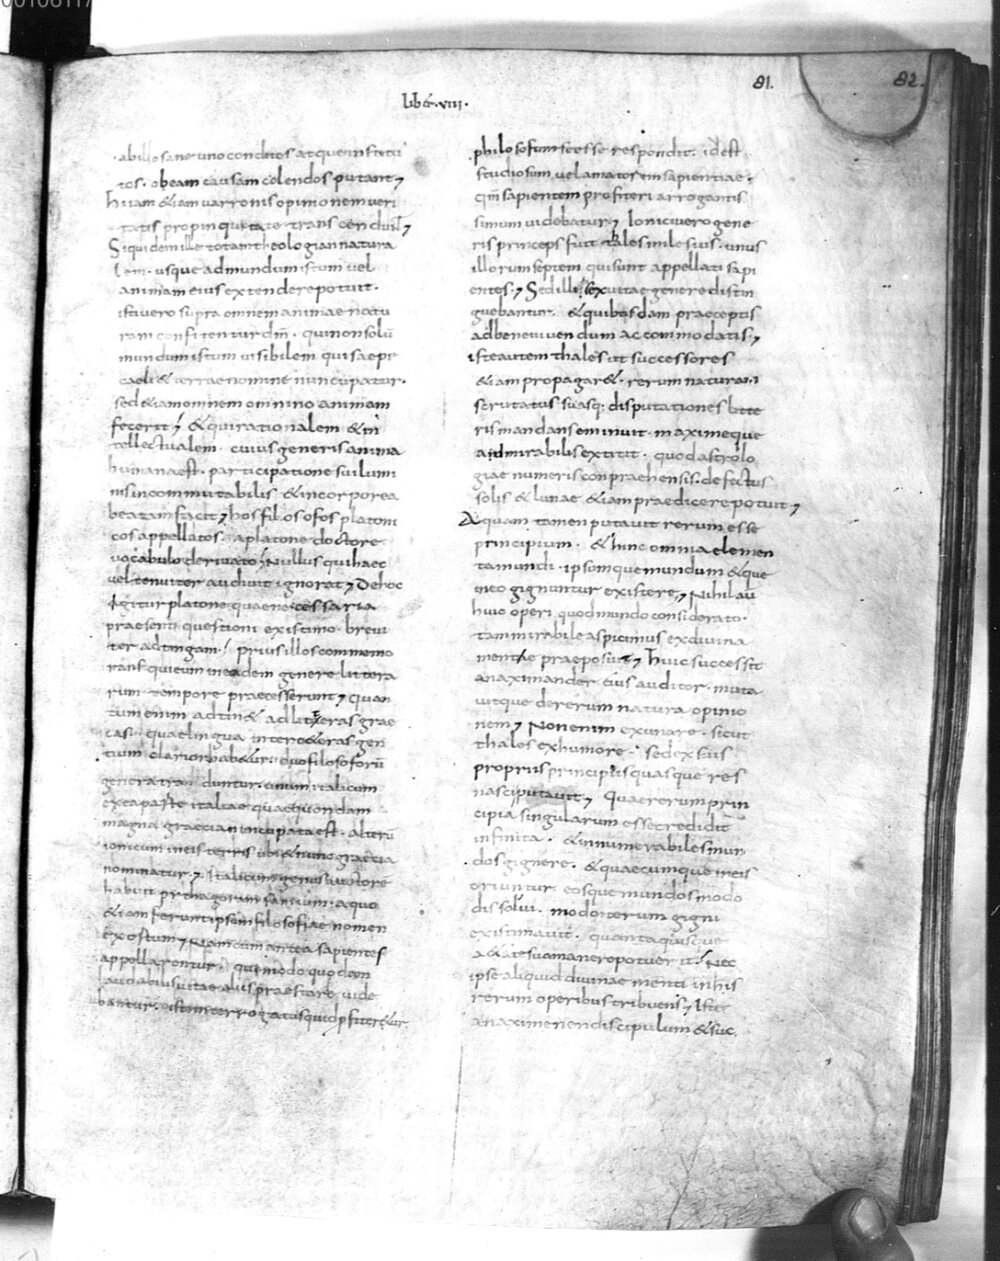 00106117
81.
82.
liber . viii .
ab illo sane uno conditos atque institu
tos . ob eam causam colendos putant ;
huiam &iam varronis opinionem veri
tatis propinquitate transcendunt ;
Siquidem ille totam theologian natura
lem . usque ad mundum istum vel
animam eius extendere potuit .
isti vero supra omnem animae natu
ram confitentur dm̄ . qui non solū
mundum istum visibilem qui saepe
caeli & terrae nomine nuncupatur .
sed &iam omnem omnino animam
fecerit ; & qui rationalem & in
tellectualem . cuius generis anima
humana est . participatione sui lumi
nis incommutabilis & incorporea
beatam facit ; hos filosofos platoni
cos appellatos . a platone doctore
vocabulo derivato ; Nullus qui haec
vel tenuiter audivit ignorat ; De hoc
igitur platone quae necessaria
praesenti questioni existimo . brevi
ter adtingam ; prius illos commemo
rans qui eum in eadem genere littera
rum tempore praecesserunt ; quan
tum enim adtin& ad litteras grae
cas . quae lingua inter c&eras gen
tium clarior hab&ur . duo filosoforū
genera traduntur . unum italicum
ex ea parte italiae quae quondam
magna graecia nuncupata est . alterū
ionicum in eis terris ubi & nunc graecia
nominatur ; Italicum genus auctorē
habuit pythagoram samium . a quo
&iam ferunt ipsum filosofiae nomen
exortum ; Nam cum antea sapientes
appellarentur . qui modo quodam
laudabilis vitae aliis praestare vide
bantur . iste interrogatus quid profiter&ur
philosofum se esse respondit . id est
studiosum vel amatorem sapientiae .
qm̄ sapientem profiteri arrogantis
simum videbatur ; Ionici vero gene
ris princeps fuit tales milesius . unus
illorum septem qui sunt appellati sapi
entes ; Sed illi sex vitae genere distin
guebantur . & quibusdam praeceptis
ad bene vivendum accommodatis ;
iste autem thales ut successores
&iam propagar& . rerum naturam
scrutatus suasq; disputationes litte
ris mandans eminuit . maximeque
admirabilis extitit . quod astrolo
giae numeris conpraehensis . defectus
solis & lunae &iam praedicere potuit ;
Aquam tamen putavit rerum esse
principium . & hinc omnia elemen
ta mundi . ipsumque mundum & que
in eo gignuntur existere ; Nihil au
huic operi quod mundo considerato .
tam mirabile aspicimus ex divina
mente praeposuit ; huic successit
anaximander eius auditor . muta
vitque de rerum natura opinio
nem ; Non enim ex una re . sicut
thales ex humore . sed ex suis
propriis principiis quasque res
nasci putavit ; Quae rerum prin
cipia singularum esse credidit
infinita . & innumerabiles mun
dos gignere . & quaecumque in eis
oriuntur . eosque mundos modo
dissolvi . modo iterum gigni
existimavit . quanta quisque
a&ate sua manere potuerit ; Nec
ipse aliquid divinae menti in his
rerum operibus tribuens ; Iste
anaximenen discipulum & suc